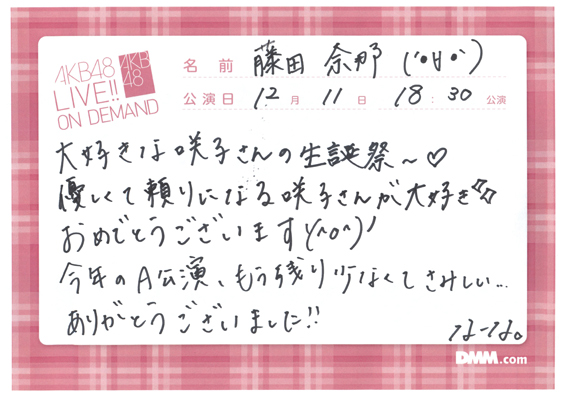 AKB48
LIVE!!
ON DEMAND
AKB
48
名前 藤田 奈那 (°∀°)
公演日 12月 11日 18:30 公演
大好きな咲子さんの生誕祭〜♡
優しくて頼りになる咲子さんが大好き☆☆
おめでとうございます(^o^)ノ
今年のA公演、もう残り少なくてさみしい...
ありがとうございました!!
なーな。
DMM.com